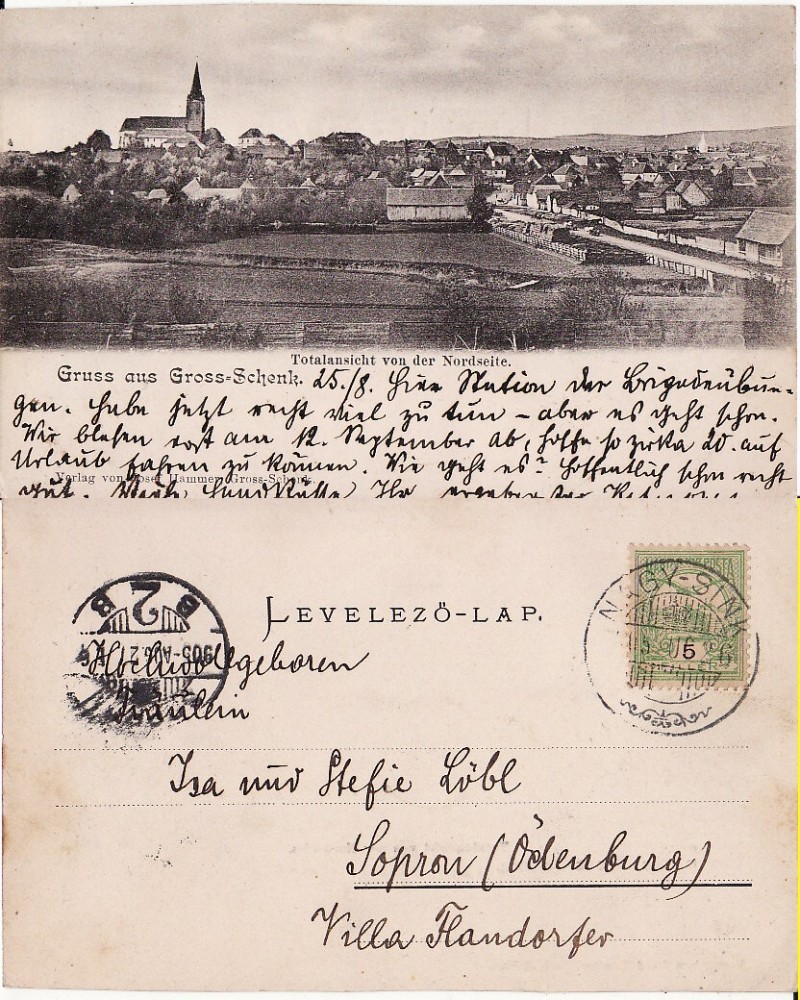 Totalansicht von der Nordseite.
Gruss aus Gross-Schenk. 25./8. Hier Station der Brigadeübun-
gen. Habe jetzt recht viel zu tun – aber es geht schon.
Wir blasen erst am 12. September ab, hoffe so zirka 20. auf
Urlaub fahren zu können. Wie geht es? Hoffentlich schon recht
Verlag von Josef Hammer, Gross-Schenk.
gut. Handküsse Ihr ergebenster
LEVELEZŐ-LAP.
NAGY-SINK
5
2
B B
1905
Hochwolgeboren
Fräulein
Isa und Stefie Löbl
Sopron (Ödenburg)
Villa Flandorfer